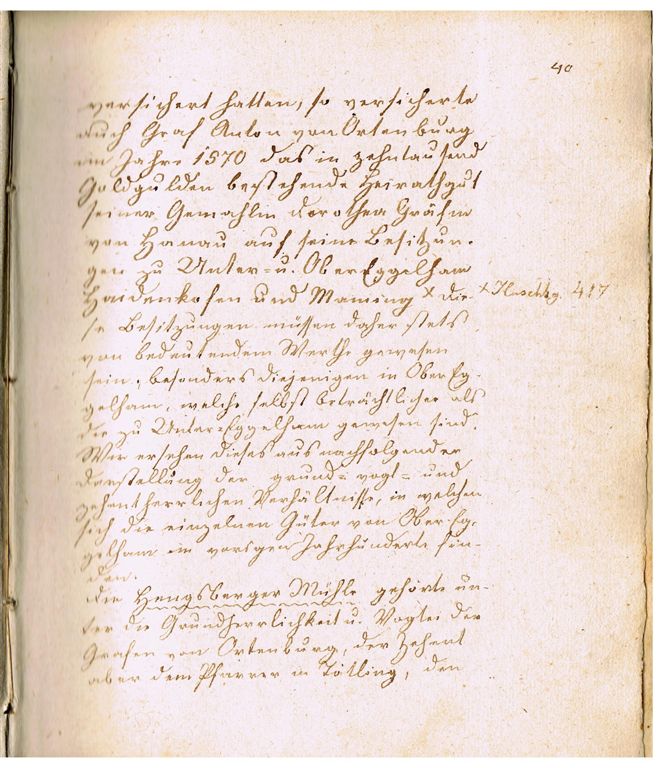 40
versichert hatten, so versicherte
auch Graf Anton von Ortenburg
im Jahre 1570 das in zehntausend
Goldgulden bestehende Heirathgut
seiner Gemahlin Dorothea Gräfin
von Hanau auf seine Besitzun-
gen zu Unter- u. OberEggelham
Haidenkofen und Maming x Die- x Huschbg. 417
se Besitzungen müssen daher stets
von bedeutendem Werthe gewesen
sein, besonders diejenigen in OberEg-
gelham, welche selbst beträchtlicher als
die zu UnterEggelham gewesen sind.
Wir ersehen dieses aus nachfolgender
Darstellung der grund- vogt- und
zehentherrlichen Verhältnisse, in welchen
sich die einzelnen Güter von Ober Eg-
gelham im vorigen Jahrhunderte fin-
den.
Die Hengsberger Mühle gehörte un-
ter die Grundherrlichkeit u. Vogtei der
Grafen von Ortenburg, der Zehent
aber dem Pfarrer in Tötling, den